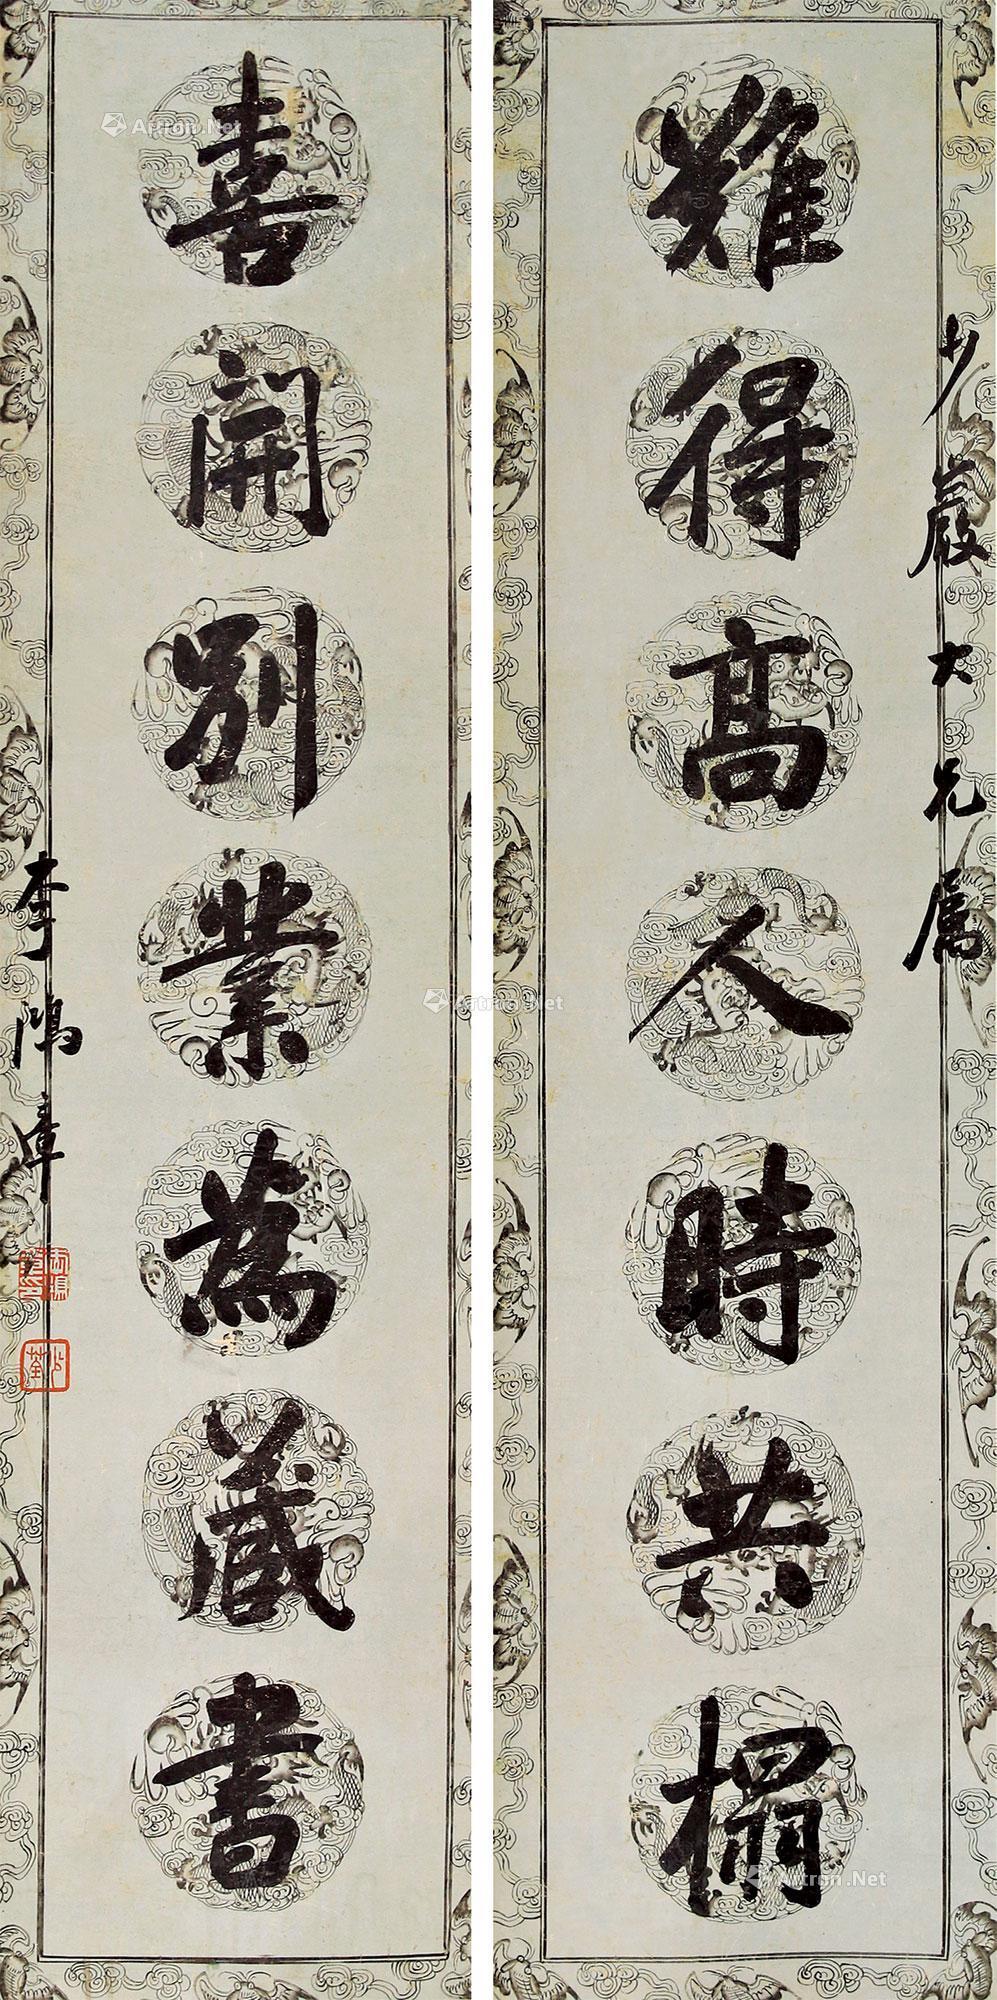 少巖大兄属
難得高人時共榻
喜開別業為藏書
李鴻章
少荃
Artron.Net
Artron.Net
Artron.Net